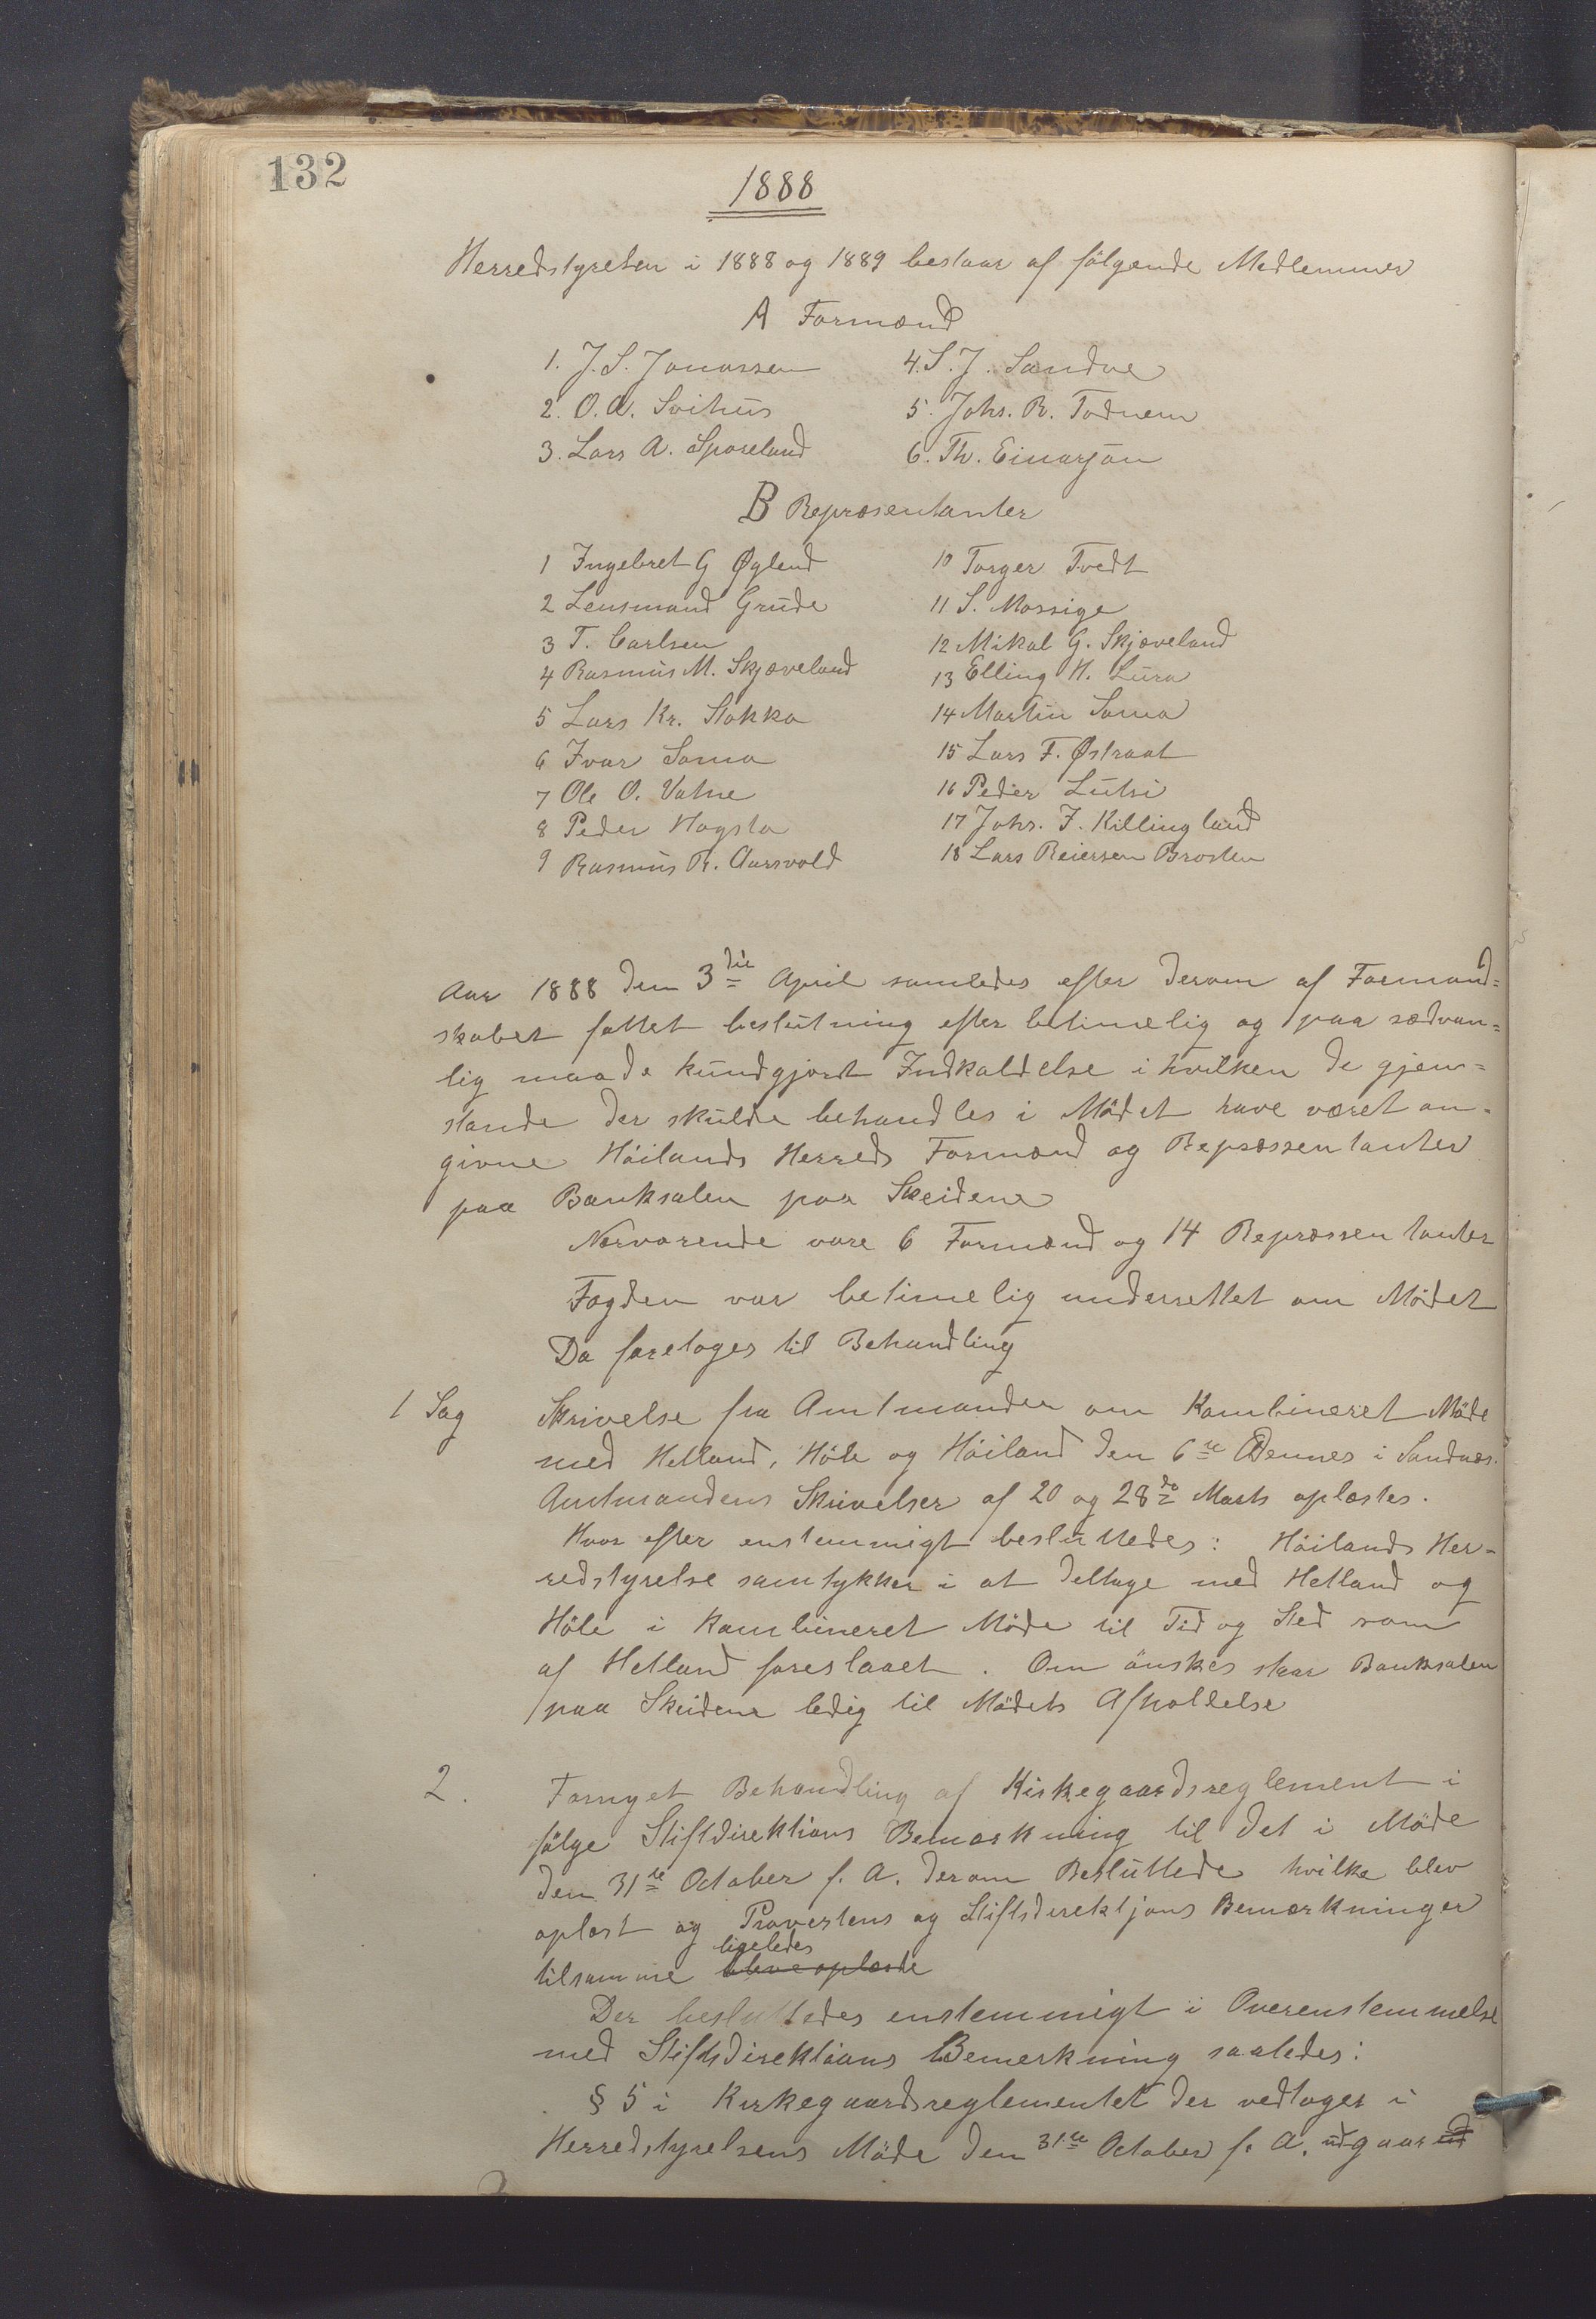 132
1888
Herredstyrelsen i 1888 og 1889 bestaar af fölgende Medlemmer
A Formænd
1. J. S. Jonassen
2. O. A. Svihus
3. Lars A. Sporeland
4. S. J. Sandve
5. Johs. R. Todnem
6. Th. Einarsön
B Repræsentanter
1 Ingebret G Øglend
2 Lensmand Grude
3 T. Carlsen
4 Rasmus M. Skjæveland
5 Lars Kr. Stokka
6 Ivar Soma
7 Ole O. Vatne
8 Peder Hogsta
9 Rasmus R. Aarsvold
10 Torger Tvedt
11 S. Mossige
12 Mikal G. Skjæveland
13 Elling H. Lura
14 Martin Soma
15 Lars F. Østraat
16 Peder Lutsi
17 Johs. J. Killingland
18 Lars Reiersen Brosten
Aar 1888 den 3die April samledes efter derom af Formand=
skabet fattet beslutning efter betimelig og paa sædvan=
lig maade kundgjordt Indkaldelse i hvilken de gjen=
stande der skulde behandles i Mödet have været an=
givne Höilands Herreds Formænd og Repræssentanter
paa Banksalen paa Skeidene
Nærværende vare 6 Formænd og 14 Repræssentanter
Fogden var betimelig underrettet om Mödet
Da foretoges til Behandling
1 Sag
Skrivelse fra Amtmanden om Kombineret Möde
med Hetland, Höle og Höiland den 6te Dennes i Sandnæs.
Amtmandens Skrivelser af 20 og 28de Marts oplæstes.
Hvor efter enstemmigt besluttedes: Höilands Her=
redstyrelse samtykker i at deltage med Hetland og
Höle i Kombineret Möde til Tid og Sted som
af Hetland foreslaaet. Om önskes staar Banksalen
paa Skeidene ledig til Mödets Afholdelse
2.
Fornyet Behandling af Kirkegaardsreglement i
fölge Stiftdirektions Bemærkning til det i Möde
den 31te October f. A. derom Besluttede hvilke blev
oplæst og Provestens og Stiftsdirektjons Bemærkninger
ligeledes
tilsamme bleve oplæste
Der besluttedes enstemmigt i Overenstemmelse
med Stiftsdirektions Bemerkning saaledes:
§ 5 i Kirkegaardsreglementet der vedtoges i
Herredstyrelsens Möde den 31te October f. A. udgaar ud